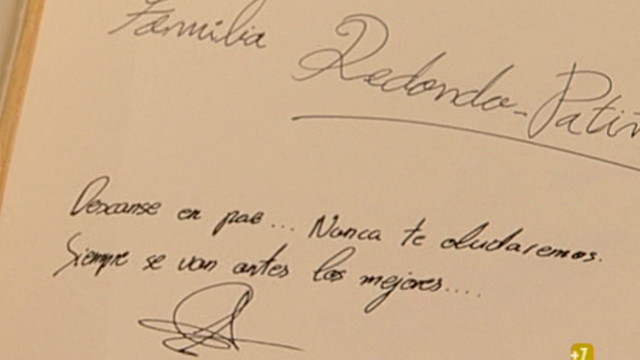 Familia
Redondo-Patiñ
Descanse en paz... Nunca te olvidaremos.
Siempre se van antes los mejores....
+7